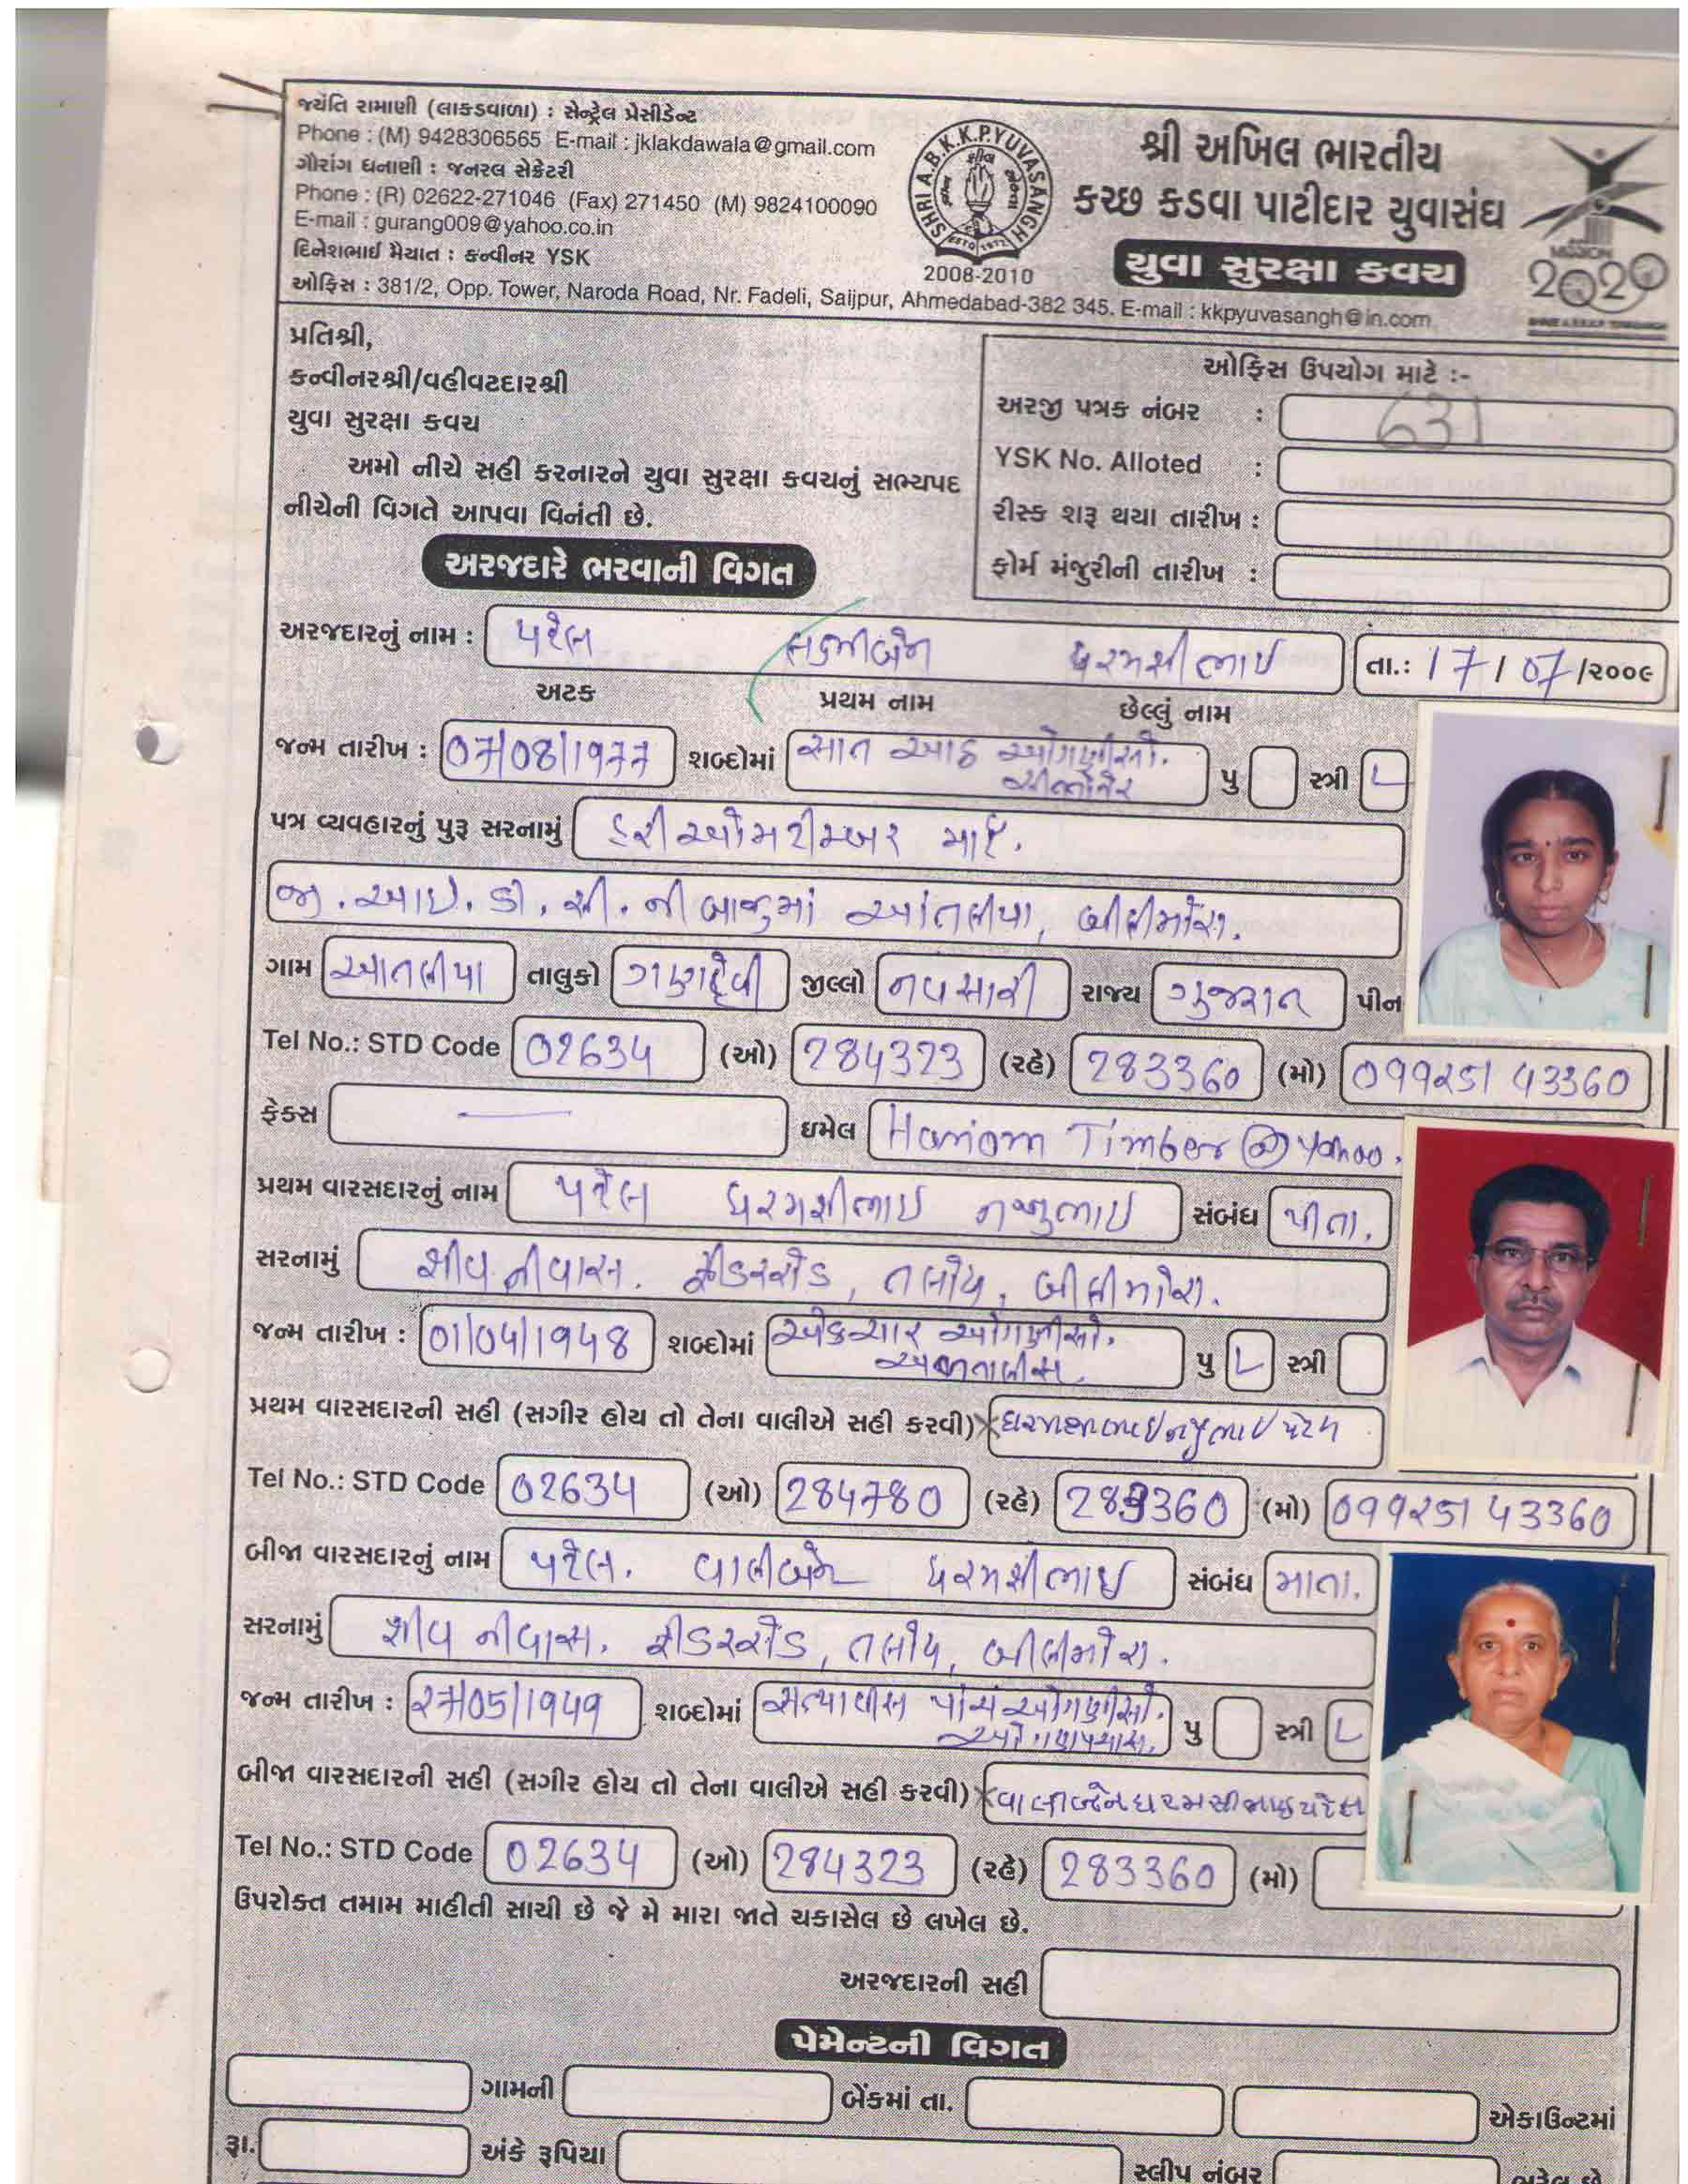 જ્યંતિ રામાણી (લાકડાવાળા) : સેન્ટ્રેલ પ્રેસીડેન્ટ
Phone : (M) 9428306565 E-mail : jklakdawala@gmail.com
ગૌરાંગ ધનાણી : જનરલ સેક્રેટરી
Phone : (R) 02622-271046 (Fax) 271450 (M) 9824100090
E-mail : gurang009@yahoo.co.in
દિનેશભાઈ મૈયાત : કન્વીનર YSK
ઓફિસ : 381/2, Opp. Tower, Naroda Road, Nr. Fadeli, Saijpur, Ahmedabad-382 345. E-mail : kkpyuvasangh@in.com
SHRI A.B.K.K.P. YUVASANGH
ESTD 1972
2008-2010
શ્રી અખિલ ભારતીય
કચ્છ કડવા પાટીદાર યુવાસંઘ
યુવા સુરક્ષા કવચ
MISSION
2020
પ્રતિશ્રી,
કન્વીનરશ્રી/વહીવટદારશ્રી
યુવા સુરક્ષા કવચ
અમો નીચે સહી કરનારને યુવા સુરક્ષા કવચનું સભ્યપદ
નીચેની વિગતે આપવા વિનંતી છે.
ઓફિસ ઉપયોગ માટે :-
અરજી પત્રક નંબર : 631
YSK No. Alloted :
રીસ્ક શરૂ થયા તારીખ :
ફોર્મ મંજુરીની તારીખ :
અરજદારે ભરવાની વિગત
અરજદારનું નામ : પટેલ લક્ષ્મીબેન ધરમશીભાઇ તા.: 17/07/૨૦૦૯
અટક પ્રથમ નામ છેલ્લું નામ
જન્મ તારીખ : 07/08/1977 શબ્દોમાં સાત આઠ ઓગણીસો. પુ સ્ત્રી
સીત્તોતેર
પત્ર વ્યવહારનું પુરૂ સરનામું હરીઓમ ટીમ્બર માર્ટ.
જી.આઇ.ડી.સી.ની બાજુમાં આંતલીયા, બીલીમોરા.
ગામ આતલીયા તાલુકો ગણદેવી જીલ્લો નવસારી રાજ્ય ગુજરાત પીન
Tel No.: STD Code 02634 (ઓ) 284323 (રહે) 283360 (મો) 09925143360
ફેક્સ ઇમેલ Hariom Timber@yahoo.
પ્રથમ વારસદારનું નામ પટેલ ધરમશીભાઇ નજુભાઇ સંબંધ પીતા.
સરનામું શીવ નીવાસ. ફીડરરોડ, તલોધ, બીલીમોરા.
જન્મ તારીખ : 01/04/1948 શબ્દોમાં એક ચાર ઓગણીસો. પુ સ્ત્રી
અડતાલીસ
પ્રથમ વારસદારની સહી (સગીર હોય તો તેના વાલીએ સહી કરવી) ધરમશીભાઇ નજુભાઇ પટેલ
Tel No.: STD Code 02634 (ઓ) 284780 (રહે) 283360 (મો) 09925143360
બીજા વારસદારનું નામ પટેલ. વાલીબેન ધરમશીભાઇ સંબંધ માતા.
સરનામું શીવ નીવાસ. ફીડરરોડ, તલોધ, બીલીમોરા.
જન્મ તારીખ : 27/05/1949 શબ્દોમાં સત્યાવીસ પાંચ ઓગણીસો. પુ સ્ત્રી
ઓગણપચાસ.
બીજા વારસદારની સહી (સગીર હોય તો તેના વાલીએ સહી કરવી) વાલીબેન ધરમસીભાઇ પટેલ
Tel No.: STD Code 02634 (ઓ) 284323 (રહે) 283360 (મો)
ઉપરોક્ત તમામ માહીતી સાચી છે જે મે મારા જાતે ચકાસેલ છે લખેલ છે.
અરજદારની સહી
પેમેન્ટની વિગત
ગામની બેંકમાં તા. એકાઉન્ટમાં
રૂા. અંકે રૂપિયા સ્લીપ નંબર ભરેલ છે